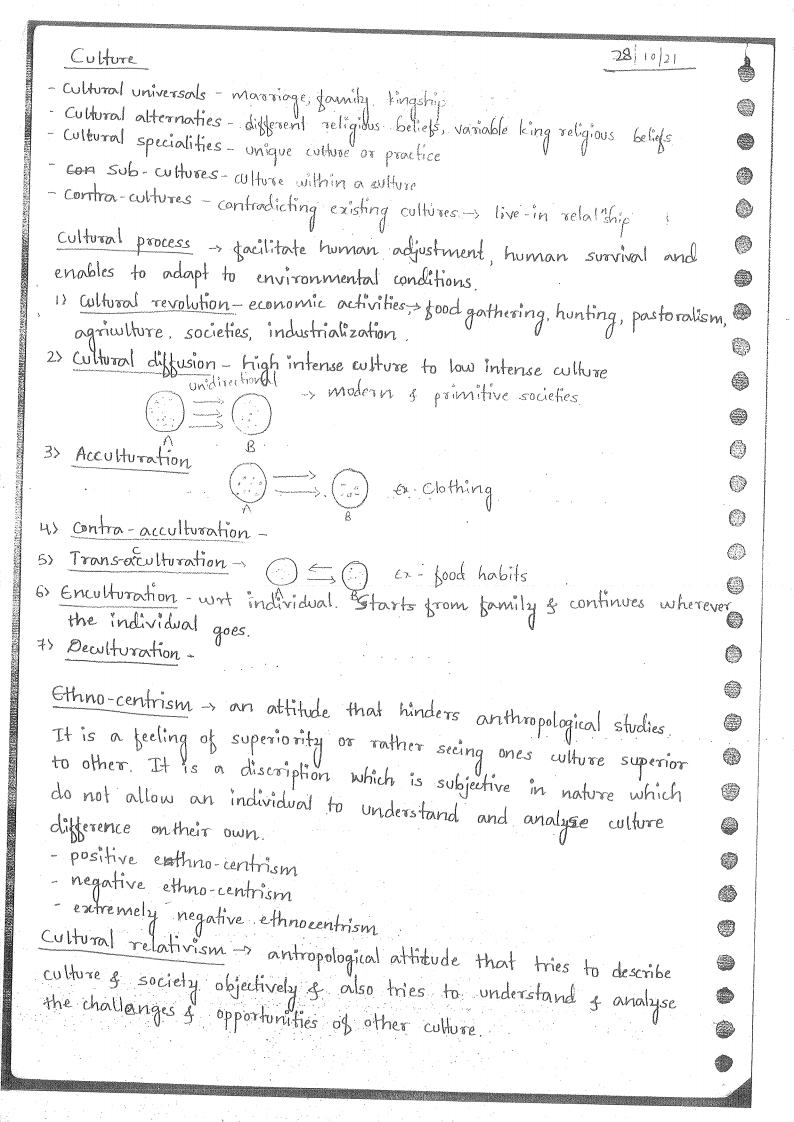 Culture
28/10/21
- Cultural universals - marriage, family, kingship
- Cultural alternaties - different religious beliefs, variable king religious beliefs
- Cultural specialities - unique culture or practice
- con Sub-cultures - culture within a culture
- Contra-cultures - contradicting existing cultures → live-in relat'nship
Cultural process → facilitate human adjustment, human survival and
enables to adapt to environmental conditions.
1) Cultural revolution - economic activities, → food gathering, hunting, pastoralism,
agriculture, societies, industrialization.
2) Cultural diffusion - high intense culture to low intense culture
Unidirectional
→ modern & primitive societies
A B
3) Acculturation
A B
Ex - Clothing
4) Contra-acculturation -
5) Trans-acculturation →
A B
Ex - food habits
6) Enculturation - wrt individual. Starts from family & continues wherever
the individual goes.
7) Deculturation -
Ethno-centrism → an attitude that hinders anthropological studies.
It is a feeling of superiority or rather seeing ones culture superior
to other. It is a discription which is subjective in nature which
do not allow an individual to understand and analyse culture
difference on their own.
- positive ethno-centrism
- negative ethno-centrism
- extremely negative ethnocentrism
Cultural relativism → antropological attitude that tries to describe
culture & society objectively & also tries to understand & analyse
the challenges & opportunities of other culture.